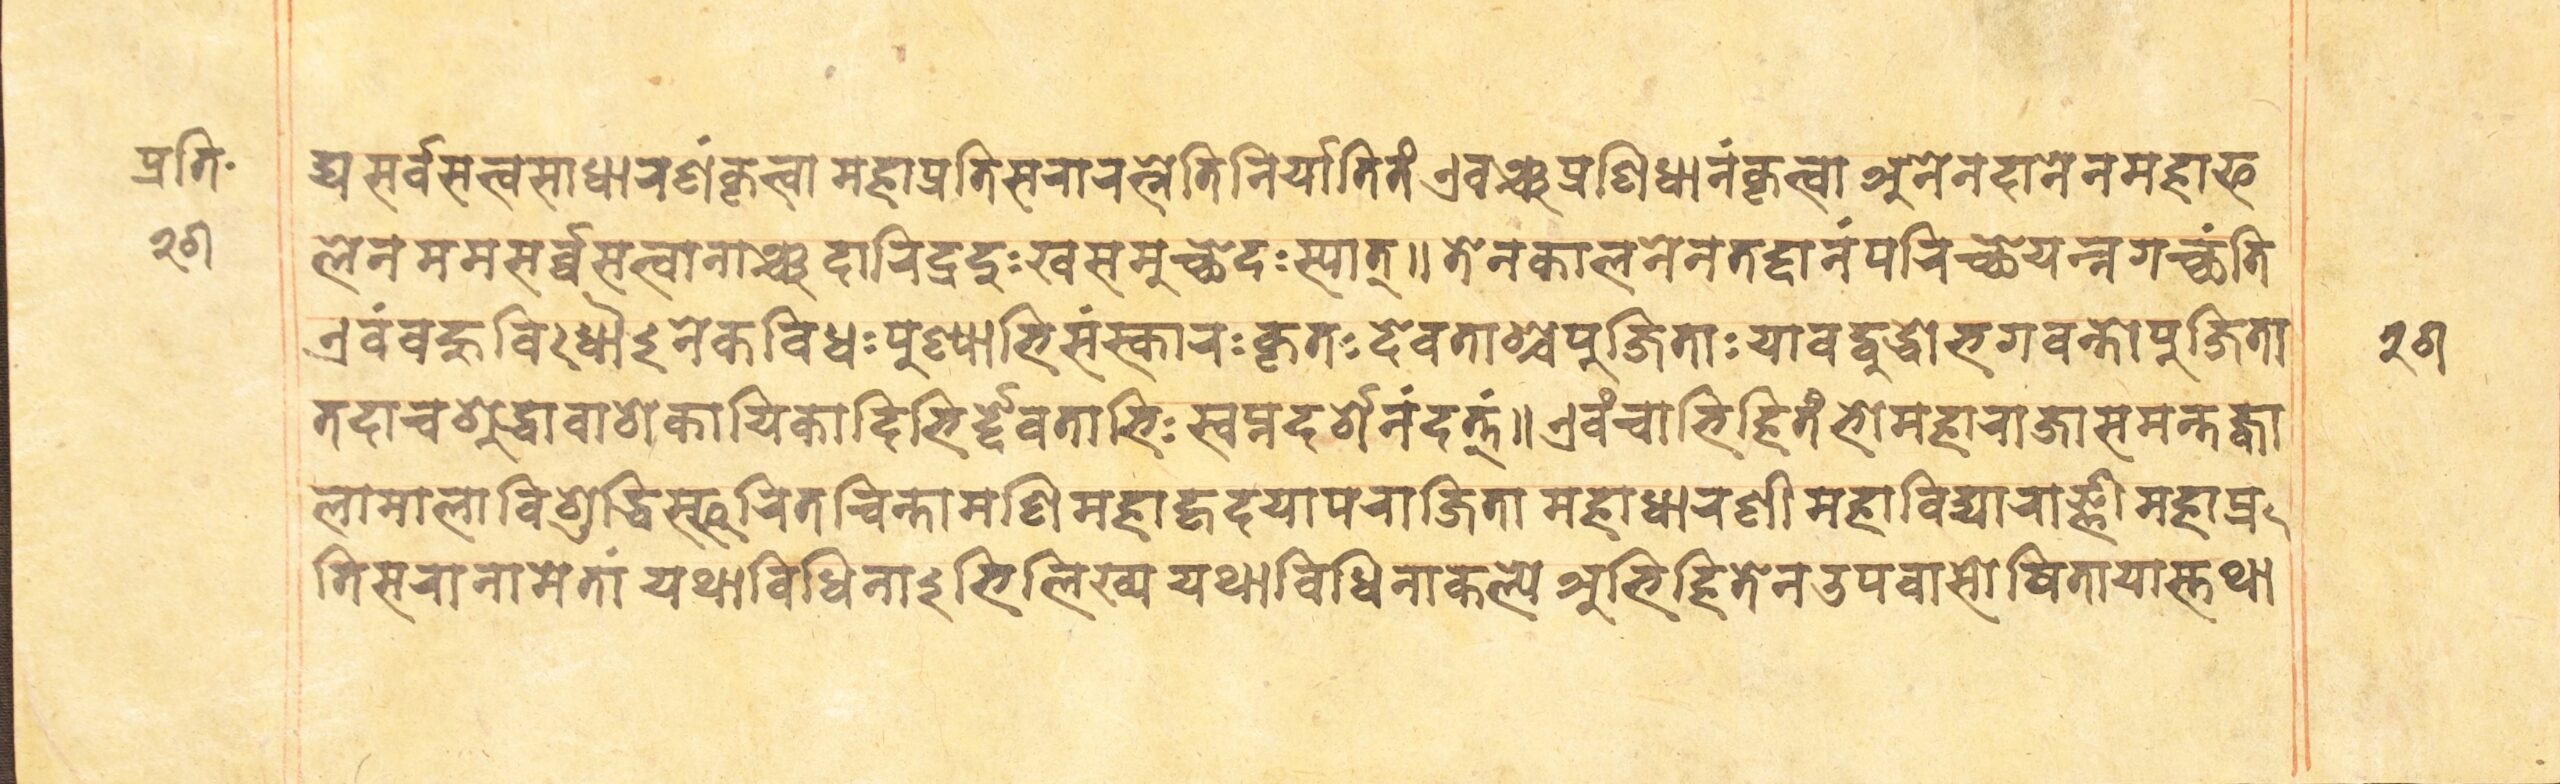 प्रति॰
२७
द्य सर्वसत्त्वसाधारणंकृत्वा महाप्रतिसरारत्नेति निर्यातितं एवञ्चप्रणिधानंकृत्वा अनेनदानेनमहाफ
लेनममसर्व्वसत्वानाञ्च दारिद्रदुःखसमुच्छेदःस्यात्॥ तेनकालनेनतद्दानंपरिच्छेयन्नगच्छंति
एवंवहुविधौऽनेकविधःपुण्याभिसंस्कारःकृतःदेवताश्चपुजिताःयावद्बुद्धोभगवन्तोपुजिता
२७
तदाचशुद्धावाशेकायिकादिभिर्द्देवताभिःस्वप्नदर्शेनंदत्तं॥ एवंचाभिहितंभोमहाराजासमन्तज्वा
लामालाविशुद्धिस्फुरितचिन्तामणिमहाहृदयापराजिता महाधारणीमहाविद्याराज्ञीमहाप्र
तिसरानामेतां यथाविधिनाऽभिलिख्य यथाविधिनाकल्पे अभिहितेनउपवासोषितायास्तथा